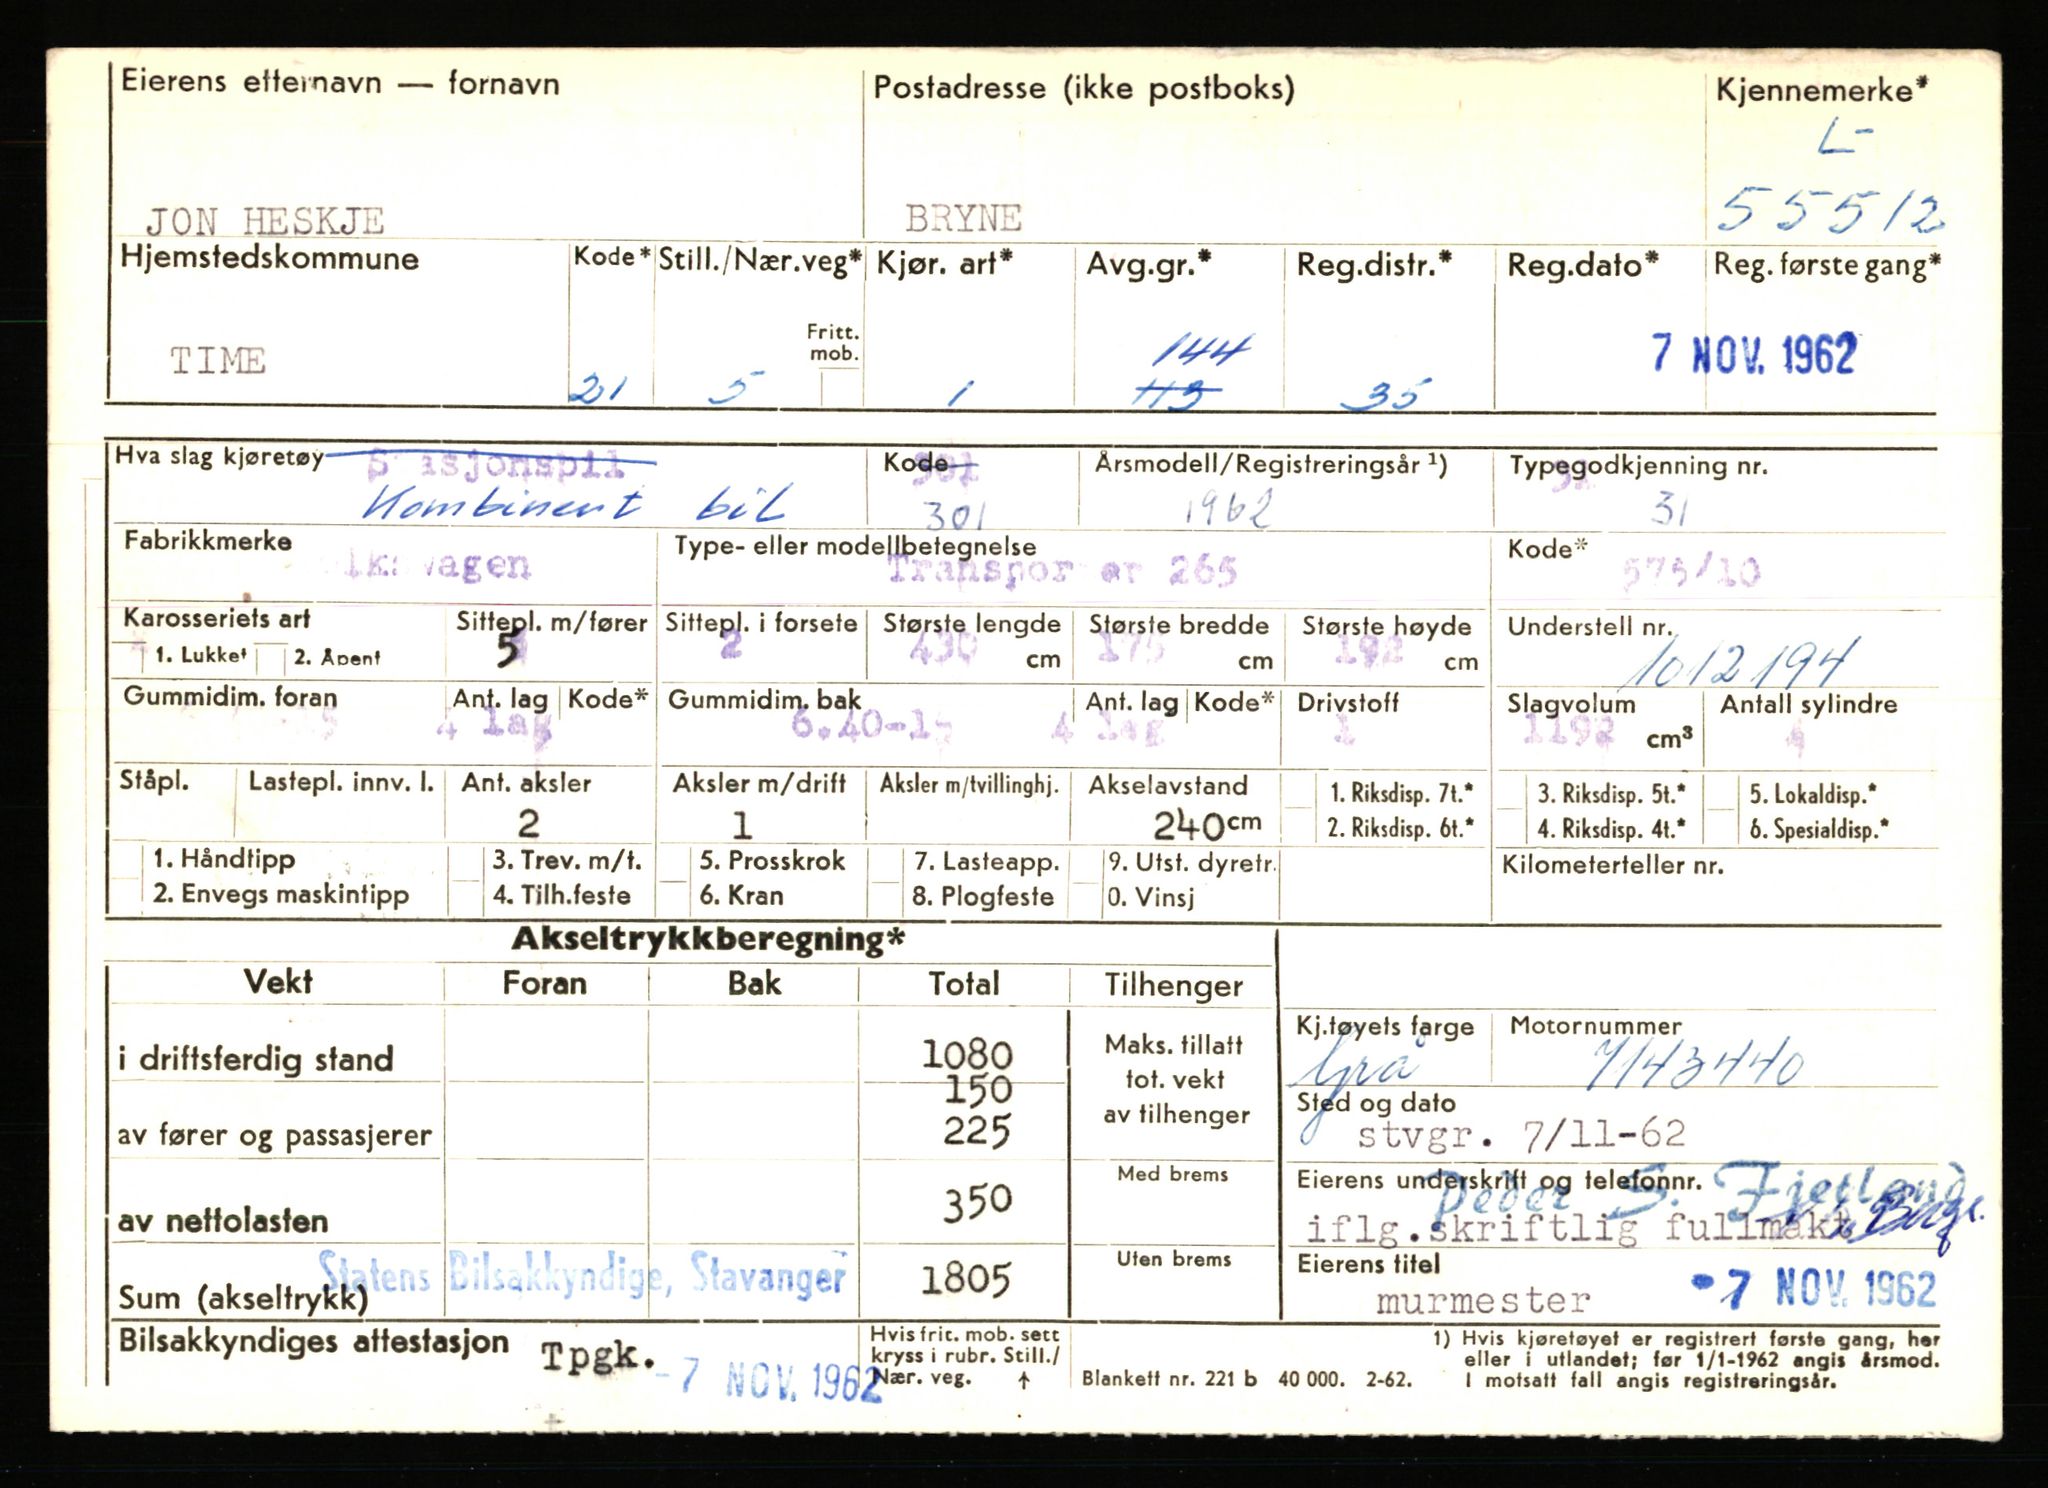 Eierens etternavn — fornavn Postadresse (ikke postboks) Kjennemerke*
L-
JON HESKJE BRYNE 55512
Hjemstedskommune Kode* Still./Nær.veg* Kjør. art* Avg.gr.* Reg.distr.* Reg.dato* Reg. første gang*
Fritt. mob. 144
TIME 7 NOV. 1962
21 5 1 113 35
Hva slag kjøretøy Stasjonsbil Kode 301 Årsmodell/Registreringsår 1) Typegodkjenning nr. 31
Kombinert bil 301 1962 31
Fabrikkmerke Type- eller modellbetegnelse Kode*
olkswagen Transporter 265 575/10
Karosseriets art Sittepl. m/fører Sittepl. i forsete Største lengde Største bredde Største høyde Understell nr.
1. Lukket 2. Åpent 5 2 430 cm 175 cm 192 cm 1012194
Gummidim. foran Ant. lag Kode* Gummidim. bak Ant. lag Kode* Drivstoff Slagvolum Antall sylindre
4 lag 6.40-15 4 lag 1 1192 cm³ 4
Ståpl. Lastepl. innv. l. Ant. aksler Aksler m/drift Aksler m/tvillinghj. Akselavstand 1. Riksdisp. 7t.* 3. Riksdisp. 5t.* 5. Lokaldisp.*
2 1 240 cm 2. Riksdisp. 6t.* 4. Riksdisp. 4t.* 6. Spesialdisp.*
1. Håndtipp 3. Trev. m/t. 5. Prosskrok 7. Lasteapp. 9. Utst. dyretr. Kilometerteller nr.
2. Envegs maskintipp 4. Tilh.feste 6. Kran 8. Plogfeste 0. Vinsj
Akseltrykkberegning*
Vekt Foran Bak Total Tilhenger
Kj.tøyets farge Motornummer
i driftsferdig stand 1080 Maks. tillatt Grå 7143440
150 tot. vekt
av fører og passasjerer 225 av tilhenger
Sted og dato
stvgr. 7/11-62
Med brems Eierens underskrift og telefonnr.
Peder S. Fjetland
av nettolasten 350 iflg.skriftlig fullmakt
Statens Bilsakkyndige, Stavanger Uten brems Eierens titel
Sum (akseltrykk) 1805 murmester -7 NOV. 1962
Bilsakkyndiges attestasjon Tpgk. -7 NOV. 1962
Hvis frit. mob. sett
kryss i rubr. Still./
Nær. veg. ↑ Blankett nr. 221 b 40 000. 2-62.
1) Hvis kjøretøyet er registrert første gang, her
eller i utlandet; før 1/1-1962 angis årsmod.
I motsatt fall angis registreringsår.